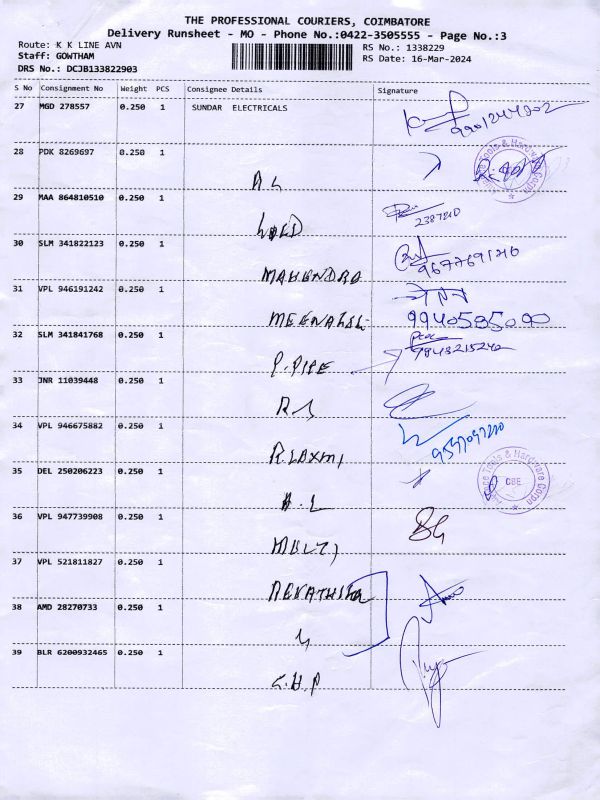 THE PROFESSIONAL COURIERS, COIMBATORE
Delivery Runsheet - MO - Phone No.:0422-3505555 - Page No.:3
Route: K K LINE AVN
RS No.: 1338229
Staff: GOWTHAM
RS Date: 16-Mar-2024
DRS No.: DCJB133822903
S No Consignment No Weight PCS Consignee Details Signature
27 MGD 278557 0.250 1 SUNDAR ELECTRICALS
28 PDK 8269697 0.250 1
29 MAA 864810510 0.250 1
2387210
30 SLM 341822123 0.250 1
MAHENDRA
31 VPL 946191242 0.250 1
9940535090
32 SLM 341841768 0.250 1
9843215242
P. PIPE
33 JNR 11039448 0.250 1
34 VPL 946675882 0.250 1
R. LAXMI
35 DEL 250206223 0.250 1
CBE
36 VPL 947739908 0.250 1
MULTI
37 VPL 521811827 0.250 1
38 AMD 28270733 0.250 1
39 BLR 6200932465 0.250 1